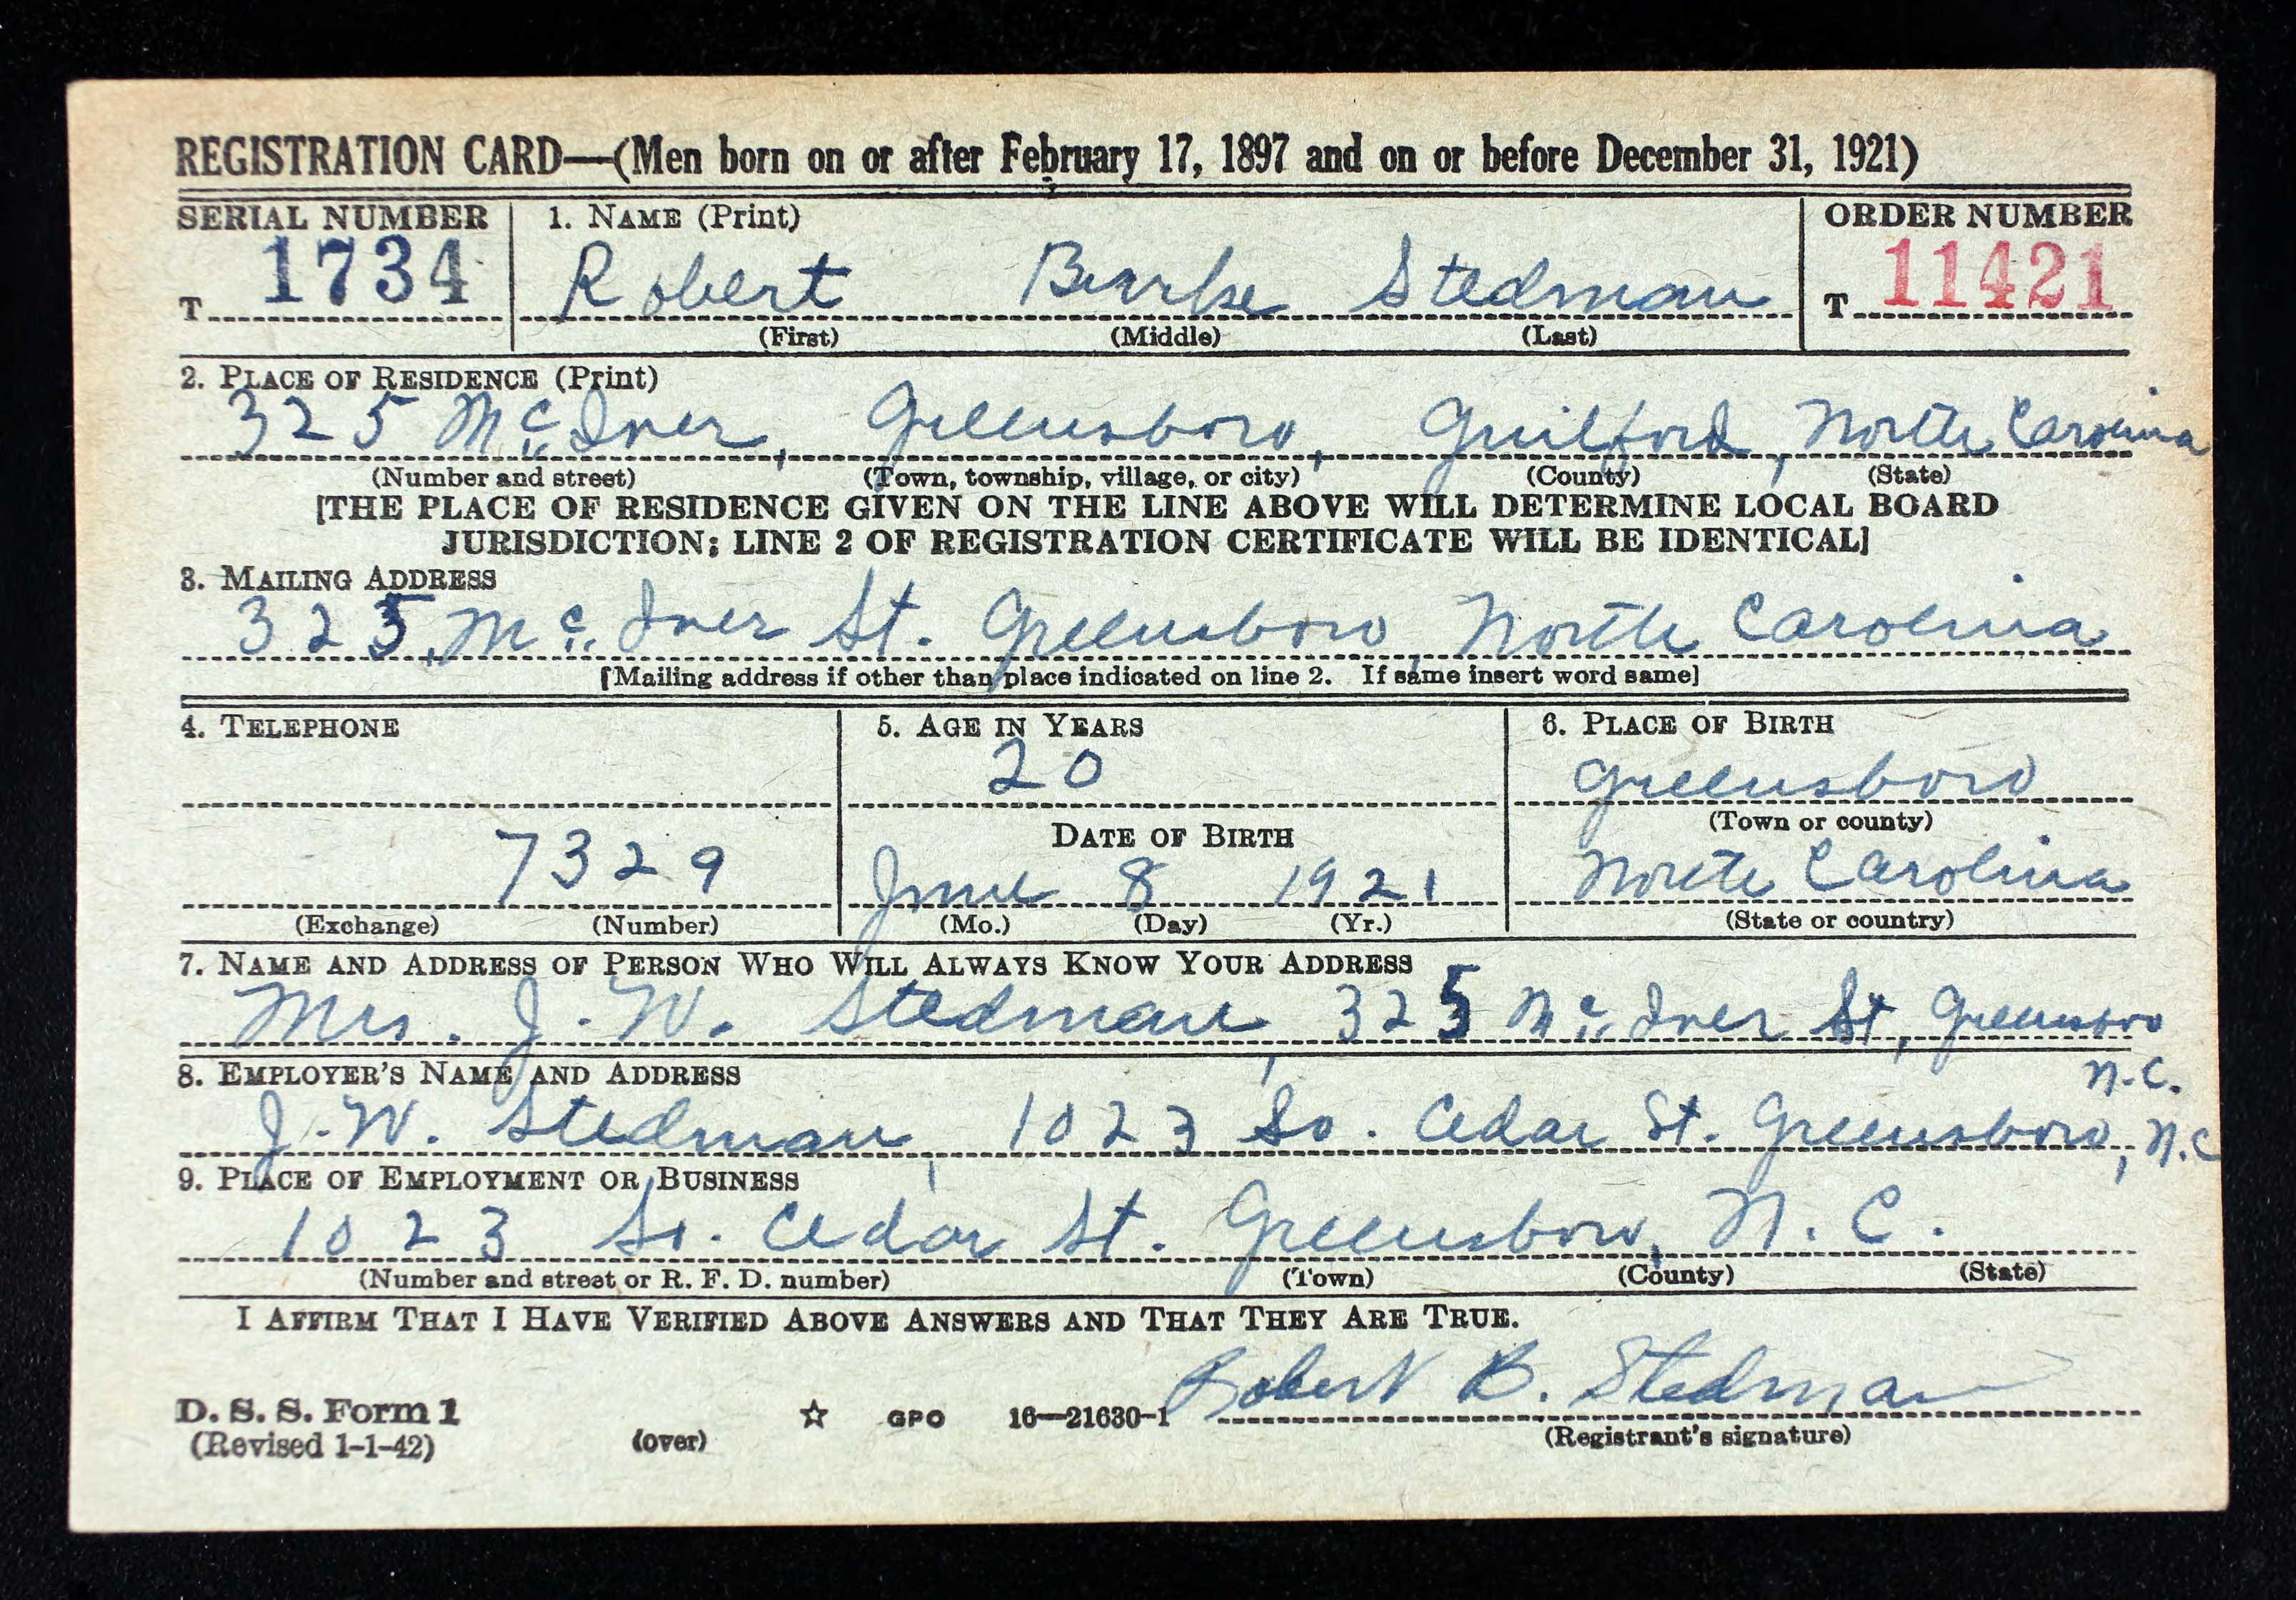 REGISTRATION CARD—(Men born on or after February 17, 1897 and on or before December 31, 1921)
SERIAL NUMBER
1. NAME (Print)
ORDER NUMBER
T 1734
Robert Burke Stedman
T 11421
(First) (Middle) (Last)
2. PLACE OF RESIDENCE (Print)
325 Mc Iver, Greensboro, Guilford, North Carolina
(Number and street) (Town, township, village, or city) (County) (State)
[THE PLACE OF RESIDENCE GIVEN ON THE LINE ABOVE WILL DETERMINE LOCAL BOARD
JURISDICTION; LINE 2 OF REGISTRATION CERTIFICATE WILL BE IDENTICAL]
3. MAILING ADDRESS
325 Mc Iver St. Greensboro, North Carolina
[Mailing address if other than place indicated on line 2. If same insert word same]
4. TELEPHONE
5. AGE IN YEARS
6. PLACE OF BIRTH
20
Greensboro
(Town or county)
DATE OF BIRTH
7329
June 8 1921
North Carolina
(Exchange) (Number)
(Mo.) (Day) (Yr.)
(State or country)
7. NAME AND ADDRESS OF PERSON WHO WILL ALWAYS KNOW YOUR ADDRESS
Mrs. J. W. Stedman, 325 Mc Iver St, Greensboro
N.C.
8. EMPLOYER'S NAME AND ADDRESS
J. W. Stedman, 1023 So. Cedar St. Greensboro, N.C
9. PLACE OF EMPLOYMENT OR BUSINESS
1023 So. Cedar St. Greensboro, N. C.
(Number and street or R. F. D. number) (Town) (County) (State)
I AFFIRM THAT I HAVE VERIFIED ABOVE ANSWERS AND THAT THEY ARE TRUE.
Robert B. Stedman
D. S. S. Form 1
(Revised 1-1-42) (over) ☆ GPO 16—21630-1
(Registrant's signature)